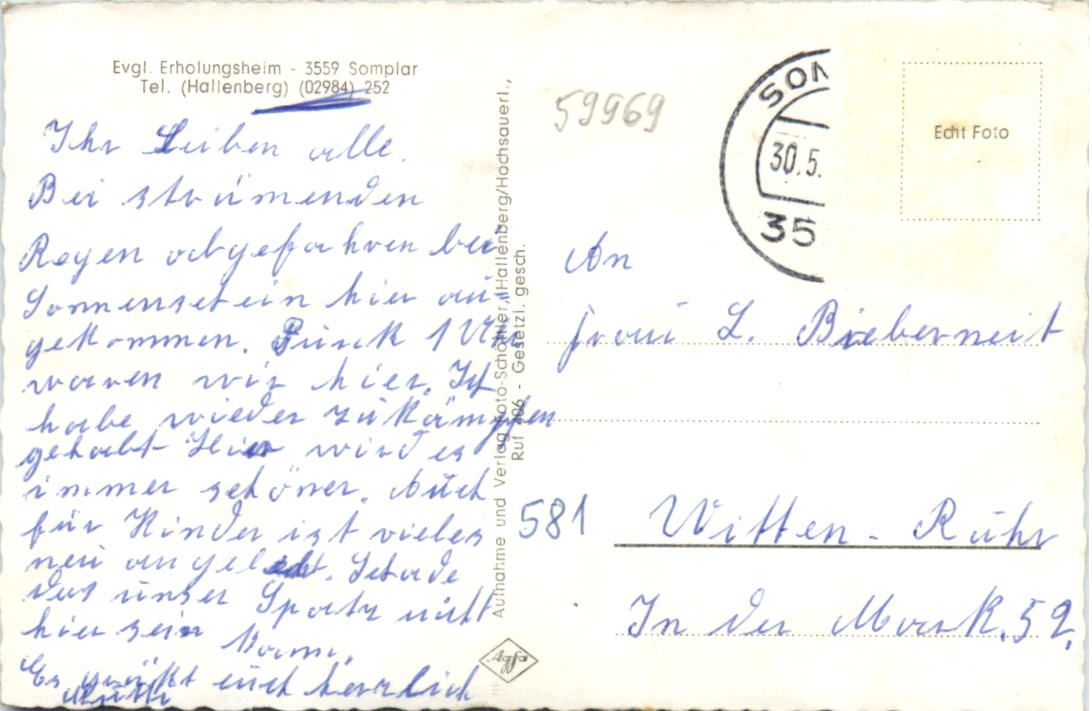 Evgl. Erholungsheim - 3559 Somplar
Tel. (Hallenberg) (02984) 252
Ihr Leiben alle.
Bei strümenden
Regen abgefahren bei
Sonnenschein hier an=
gekommen. Punk 1 Uhr
waren wir hier. Ich
habe wieder zukämpfen
gehabt Hier wird es
immer schöner. Auch
für Kinder ist vieles
neu angelecht. Schade
das unser Spatz nicht
hier sein kann.
Es grüßt euch herrlich
Aufnahme und Verlag Foto-Schäffler, Hallenberg/Hochsauerl.,
Ruf 206 - Gesetzl. gesch.
Agfa
59969
SOM
30.5.
35
Echt Foto
An
Frau L. Bieberneit
581 Witten - Ruhr
In der Mark. 52.